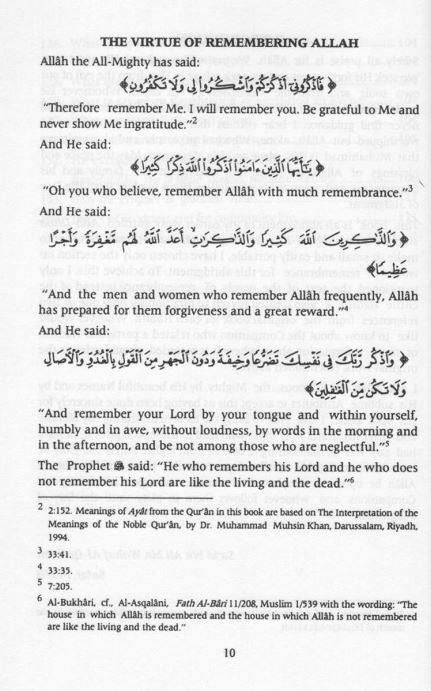 THE VIRTUE OF REMEMBERING ALLAH
Allâh the All-Mighty has said:
﴿ فَاذْكُرُونِي أَذْكُرْكُمْ وَاشْكُرُوا لِي وَلَا تَكْفُرُونِ ﴾
"Therefore remember Me. I will remember you. Be grateful to Me and
never show Me ingratitude."2
And He said:
﴿ يَا أَيُّهَا الَّذِينَ ءَامَنُوا اذْكُرُوا اللَّهَ ذِكْرًا كَثِيرًا ﴾
"Oh you who believe, remember Allâh with much remembrance."3
And He said:
﴿ وَالذَّاكِرِينَ اللَّهَ كَثِيرًا وَالذَّاكِرَاتِ أَعَدَّ اللَّهُ لَهُم مَّغْفِرَةً وَأَجْرًا
عَظِيمًا ﴾
"And the men and women who remember Allâh frequently, Allâh
has prepared for them forgiveness and a great reward."4
And He said:
﴿ وَاذْكُر رَّبَّكَ فِي نَفْسِكَ تَضَرُّعًا وَخِيفَةً وَدُونَ الْجَهْرِ مِنَ الْقَوْلِ بِالْغُدُوِّ وَالْآصَالِ
وَلَا تَكُن مِّنَ الْغَافِلِينَ ﴾
"And remember your Lord by your tongue and within yourself,
humbly and in awe, without loudness, by words in the morning and
in the afternoon, and be not among those who are neglectful."5
The Prophet ﷺ said: "He who remembers his Lord and he who does
not remember his Lord are like the living and the dead."6
2 2:152. Meanings of Ayât from the Qur'ân in this book are based on The Interpretation of the
Meanings of the Noble Qur'ân, by Dr. Muhammad Muhsin Khan, Darussalam, Riyadh,
1994.
3 33:41.
4 33:35.
5 7:205.
6 Al-Bukhâri, cf., Al-Asqalâni, Fath Al-Bâri 11/208, Muslim 1/539 with the wording: "The
house in which Allâh is remembered and the house in which Allâh is not remembered
are like the living and the dead."
10